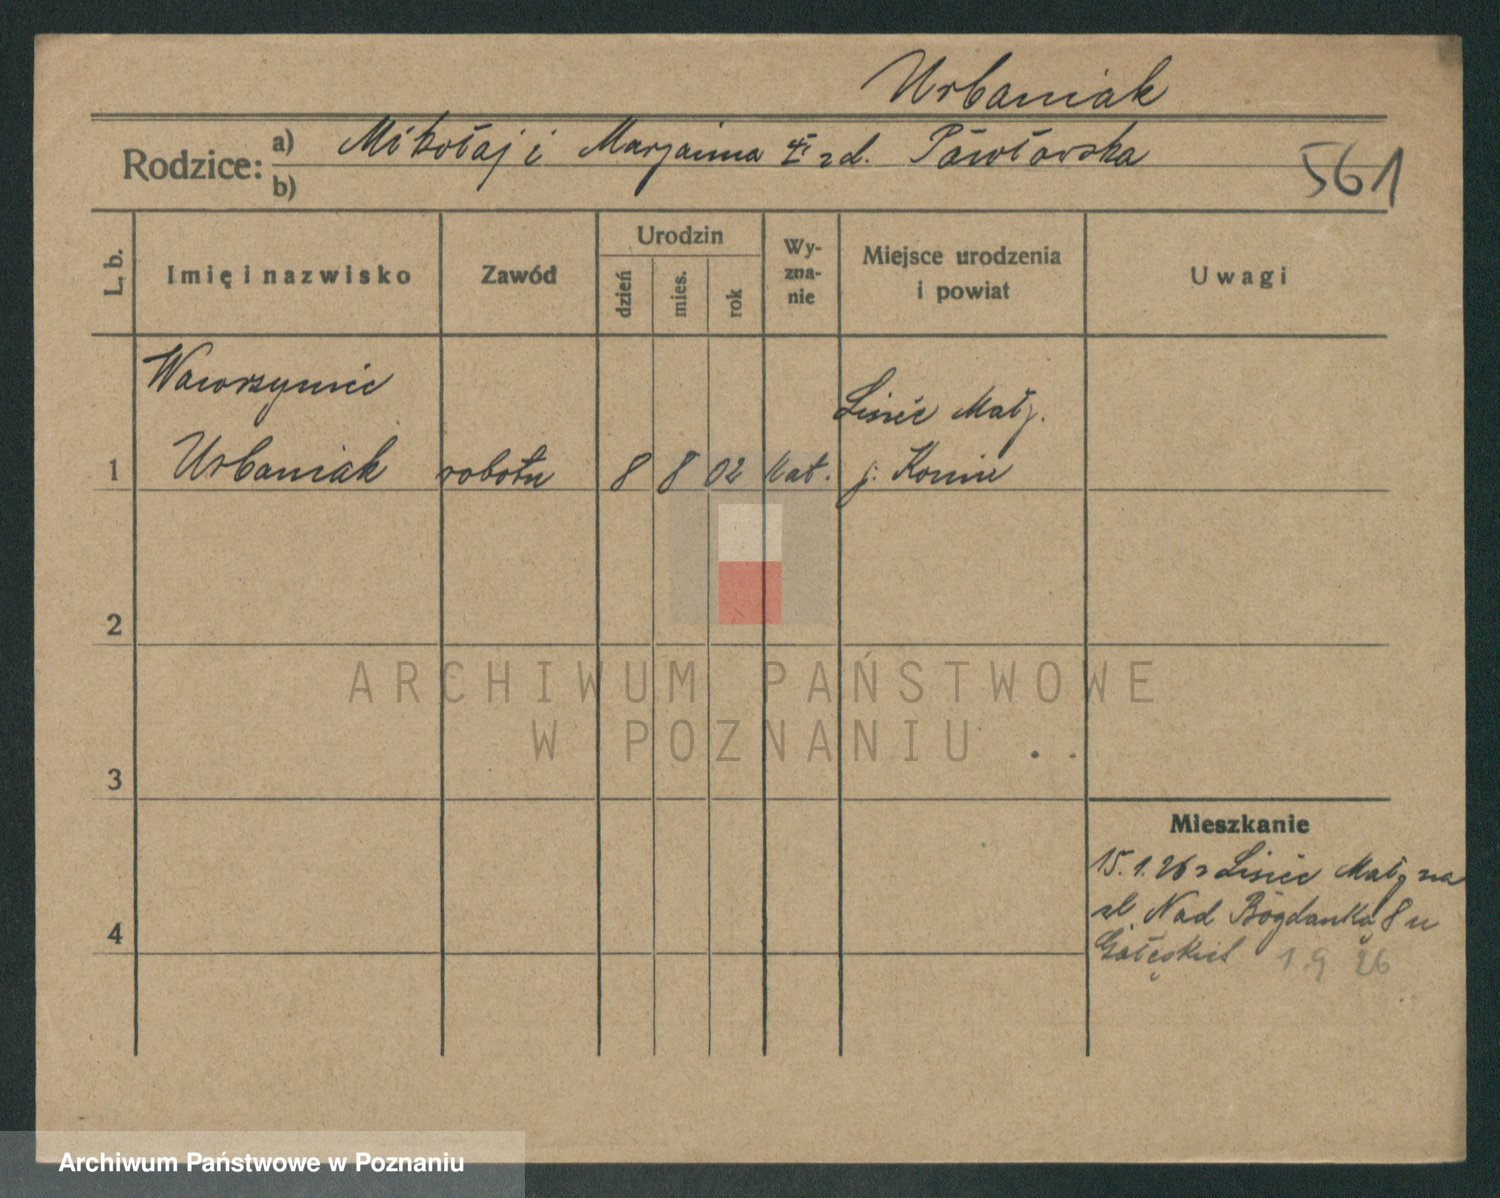 Urbaniak
Rodzice: a) Mikołaj i Marjanna z d. Pawłowska
b)
561
L. b. Imię i nazwisko Zawód Urodzin dzień mies. rok Wy-zna-nie Miejsce urodzenia i powiat Uwagi
Wawrzyniec
Lisiec Mały.
1 Urbaniak robotn 8 8 02 kat. p. Konin
2
ARCHIWUM PAŃSTWOWE
W POZNANIU
3
Mieszkanie
15.1.26 z Lisiec Mały na
ul. Nad Bogdanką 8 u
4
1.9 26
Archiwum Państwowe w Poznaniu